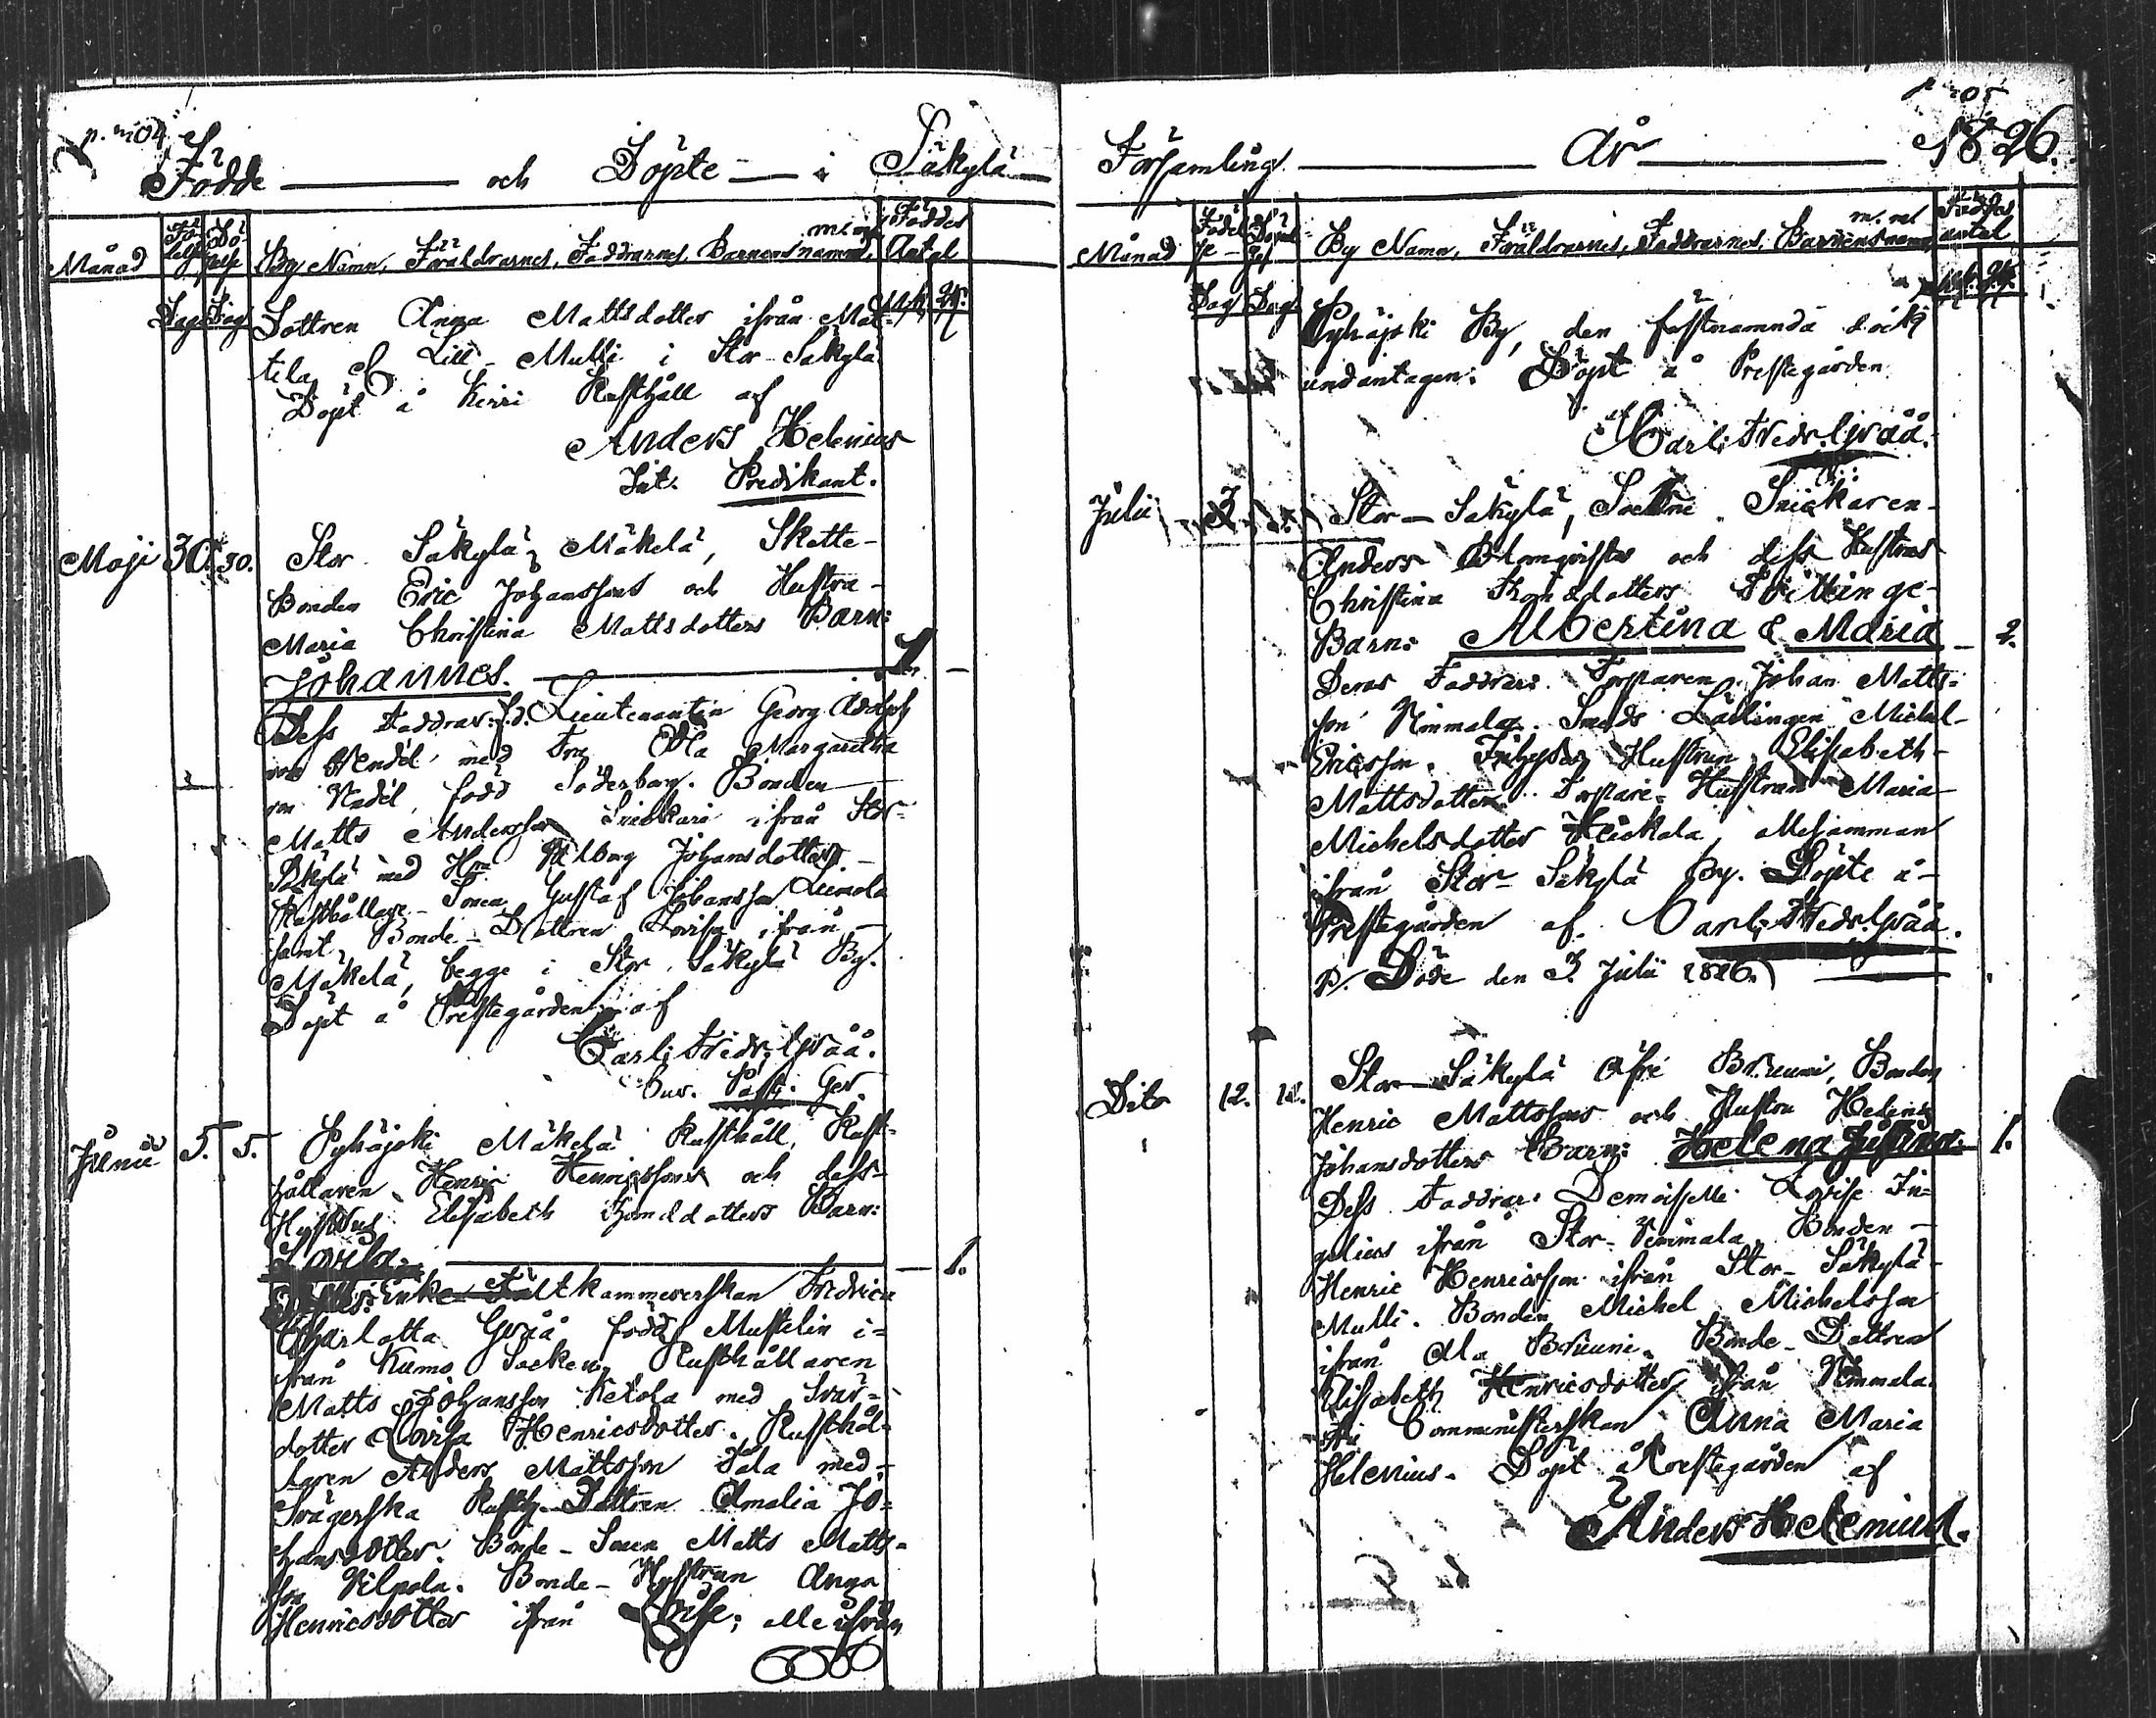 p. 104
Födde och Döpte i Säkylä
Månad Födelse Döpelse By Namn, Föräldrarnes, Faddrarnes, Barnens namn, m.m. Föddes Antal
Dag Dag Mk. Qk.
Dottren Anna Mattsdotter ifrån Mat-
tila & Lill-Mulli i Stor-Säkylä
Döpt å Kirri Rusthåll af
Anders Helenius
Predikant.
Maji 30. 30. Stor Säkylä, Mäkelä, Skatte-
Bonden Eric Johanssons och Hustru-
Maria Christina Mattsdotters Barn:
Johannes. 1.
Dess Faddrar: f.d. Lieutenanten Georg Adolph
med Fru Ulla Margaretha
född Söderborg. Bonden
Matts Andersson ifrån Stor-
Säkylä med Hu Walborg Johansdotter,
Rusthållare-Sonen Gustaf Johansson Liinola
samt Bonde-Dottren Lovisa ifrån
Mäkelä, begge i Stor Säkylä By.
Döpt å Prestegården af
Carl Fredr. Gråå.
Cur. Past. Ger.
Junii 5. 5. Pyhäjoki Mäkelä Rusthåll, Rust-
hållaren Henric Henricssons och dess
Hustrus Elisabeth Thomædotters Barn:
Lovisa. 1.
Enke Fältkammererskan Fredrica
Charlotta Gråå född Mustelin i-
från Kumo Socken, Rusthållaren
Matts Johansson Ketola med Svär-
dotter Lovisa Henricsdotter. Rusthål-
laren Anders Mattsson Jala med
Svägerska Rusth. Dottren Amalia Jo-
hansdotter. Bonde-Sonen Matts Matts-
son Kilpola. Bonde-Hustrun Anna
Henricsdotter ifrån alle ifrån
Församling År 1826.
Månad Födelse Döpelse By Namn, Föräldrarnes, Faddrarnes, Barnens namn, m.m. Föddes antal
Dag Dag Mk. Qk.
Pyhäjoki By, den sistnamnda dock
undantagen: Döpt å Prestegården
af Carl Fredr. Gråå.
Julii 3. Stor-Säkylä, Sockne Snickaren
Anders Blomqvistes och dess Hustrus
Christina Thomædotters Tvillinge-
Barn: Albertina & Maria 2.
Deras Faddrar: Torparen Johan Matts-
son Nimmala. Smeds Lärlingen Michel
Ericsson. Hustrun Elisabeth
Mattsdotter. Torpare-Hustrun Maria
Michelsdotter Heickola, allesamman
ifrån Stor-Säkylä By. Döpte å
Prestegården af Carl Fredr. Gråå.
Döde den 3. Julii 1826.
Dito 12. 12. Stor-Säkylä Öfre Bruuni, Bonden
Henric Mattssons och Hustru Helena
Johansdotters Barn: Helena Justina. 1.
Dess Faddrar: Demoiselle Lovise In-
gelius ifrån Stor-Nimmala. Bonden
Henric Henricsson ifrån Stor-Säkylä
Mulli. Bonden Michel Michelsson
ifrån Ala Bruuni. Bonde-Dottren
Elisabeth Henricsdotter ifrån Nimmala.
Fru Comministerskan Anna Maria
Helenius. Döpt å Prestegården af
Anders Helenius.